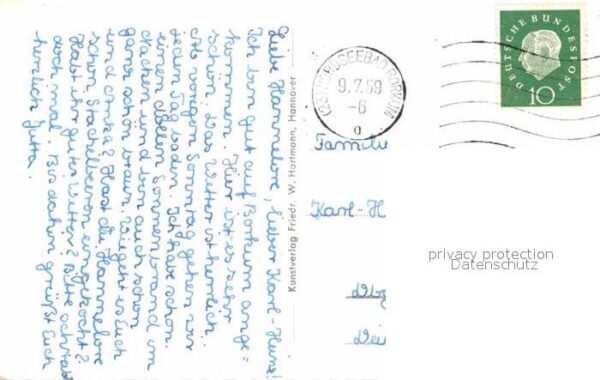 Liebe Hannelore, lieber Karl-Heinz!
Ich bin gut auf Borkum ange=
kommen. Hier ist es sehr
schön. Das Wetter ist herrlich.
Ab vorigen Sonntag gehen wir
jeden Tag baden. Ich habe schon
einen dollen Sonnenbrand im
Nacken und bin auch schon
ganz schön braun. Wie geht es Euch
und Omka? Hast du Hannelore
schon Stachelbeeren eingekocht?
Habt ihr gutes Wetter? Bitte schreibt
auch mal. Bis dahin grüßt Euch
herzlich Jutta.
Kunstverlag Friedr. W. Hartmann, Hannover
NORDSEEBAD BORKUM
9.7.59
-6
a
DEUTSCHE BUNDESPOST
10
Familie
Karl-H
privacy protection
Datenschutz